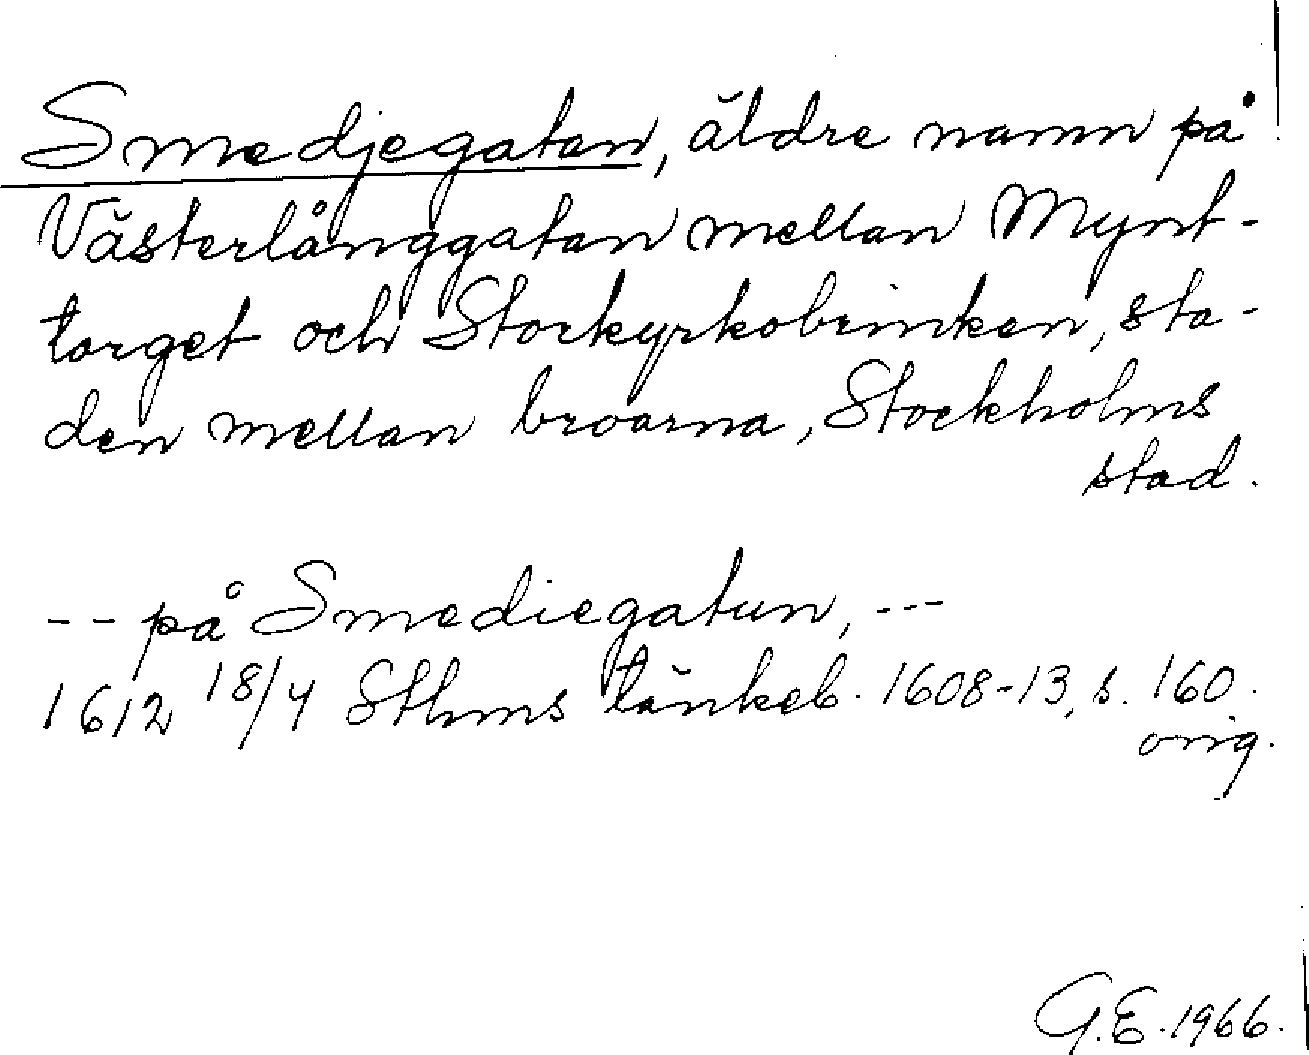 Smedjegatan, äldre namn på
Västerlånggatan mellan Mynt-
torget och Storkyrkobrinken, sta-
den mellan broarna, Stockholms
stad.
-- på Smediegatun, ---
1612 18/4 Sthms tänkeb. 1608-13, s. 160.
orig.
G.E. 1966.